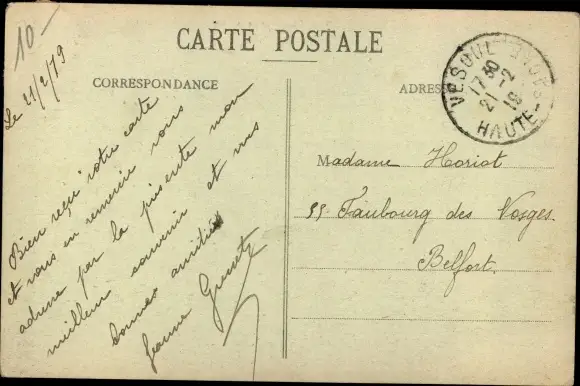 10-
CARTE POSTALE
CORRESPONDANCE
ADRESSE
VESOUL
17 30
21 - 2
19
HAUTE-
Le 21/2/19
Bien reçu votre carte
et vous en remercie vous
adresse par la présente mon
meilleur souvenir et mes
bonnes amitiés
Jeanne
Madame Horiot
55 Faubourg des Vosges
Belfort.